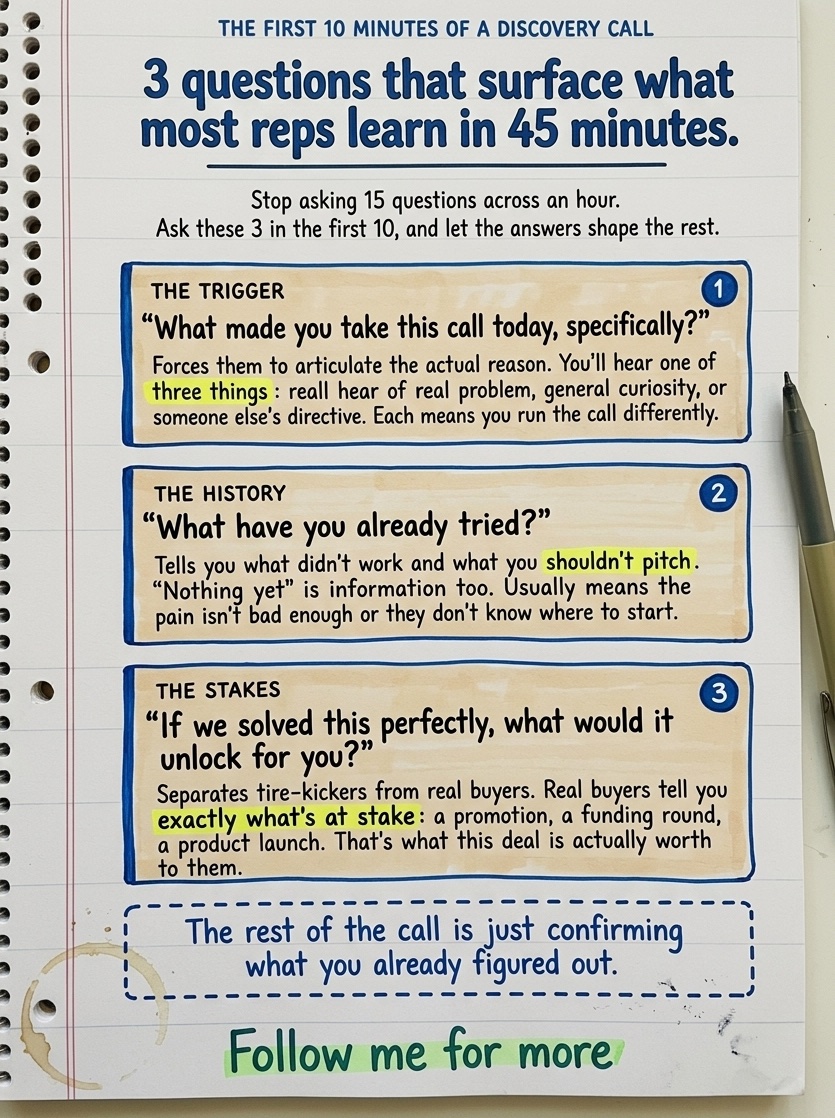 THE FIRST 10 MINUTES OF A DISCOVERY CALL
3 questions that surface what
most reps learn in 45 minutes.
Stop asking 15 questions across an hour.
Ask these 3 in the first 10, and let the answers shape the rest.
THE TRIGGER
1
“What made you take this call today, specifically?”
Forces them to articulate the actual reason. You'll hear one of
three things: reall hear of real problem, general curiosity, or
someone else's directive. Each means you run the call differently.
THE HISTORY
2
“What have you already tried?”
Tells you what didn't work and what you shouldn't pitch.
“Nothing yet” is information too. Usually means the
pain isn't bad enough or they don't know where to start.
THE STAKES
3
“If we solved this perfectly, what would it
unlock for you?”
Separates tire-kickers from real buyers. Real buyers tell you
exactly what's at stake: a promotion, a funding round,
a product launch. That's what this deal is actually worth
to them.
The rest of the call is just confirming
what you already figured out.
Follow me for more